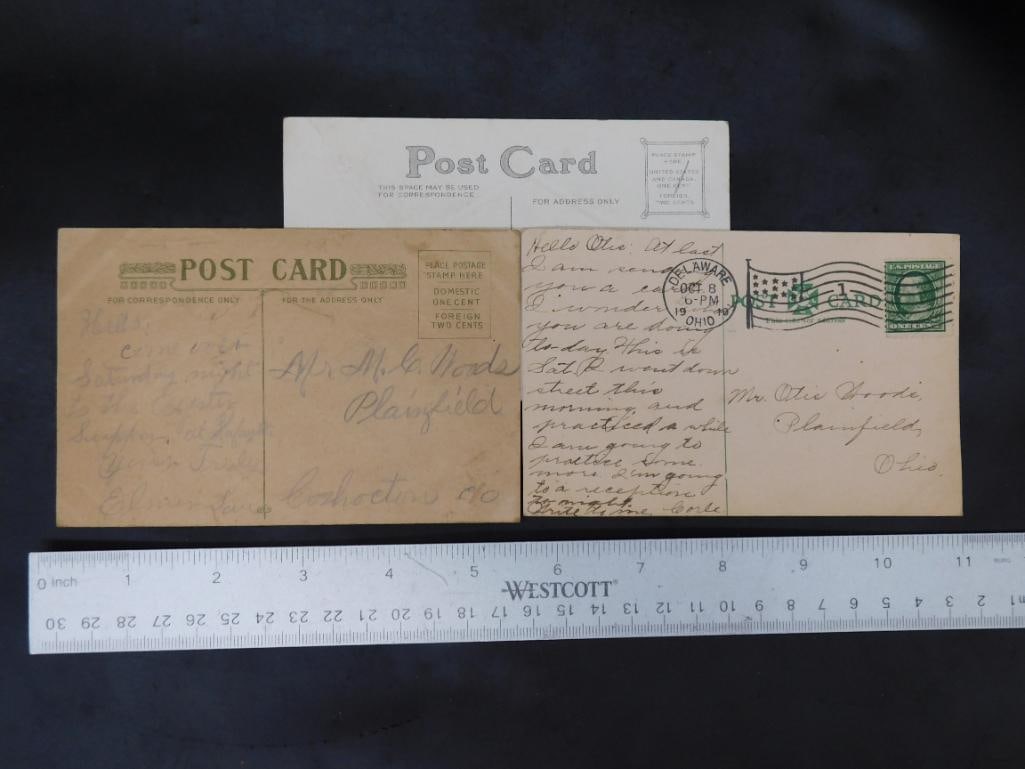 Post Card
THIS SPACE MAY BE USED
FOR CORRESPONDENCE
FOR ADDRESS ONLY
PLACE STAMP
HERE
UNITED STATES
AND CANADA,
ONE CENT
FOREIGN,
TWO CENTS
POST CARD
FOR CORRESPONDENCE ONLY
FOR THE ADDRESS ONLY
PLACE POSTAGE
STAMP HERE
DOMESTIC
ONE CENT
FOREIGN
TWO CENTS
Hello.
come over
Saturday night
to the
Supper at
Yours Truly
Mr M. C. Woods
Plainfield
Coshocton c/o
Hello Otis: At last
I am
you a
I wonder
you are doing
to-day. This is
Sat. I went down
street this
morning and
practiced a while
I am going to
practice some
more. I'm going
to a reception
to-night
Write to me.
DELAWARE
OCT 8
6-PM
1910
OHIO
1
POST CARD
U.S. POSTAGE
ONE CENT
Mr. Otis Woods,
Plainfield,
Ohio.
0 inch 1 2 3 4 5 6 7 8 9 10 11
WESTCOTT®
30 29 28 27 26 25 24 23 22 21 20 19 18 17 16 15 14 13 12 11 10 9 8 7 6 5 4 3 2 1